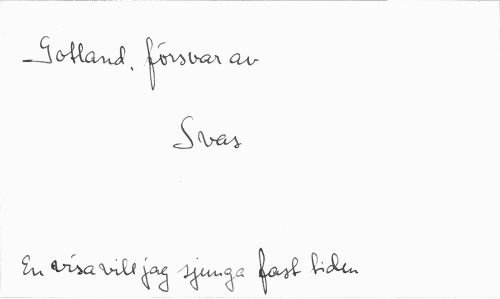 Gotland, försvar av
Svas
En visa vill jag sjunga fast tiden